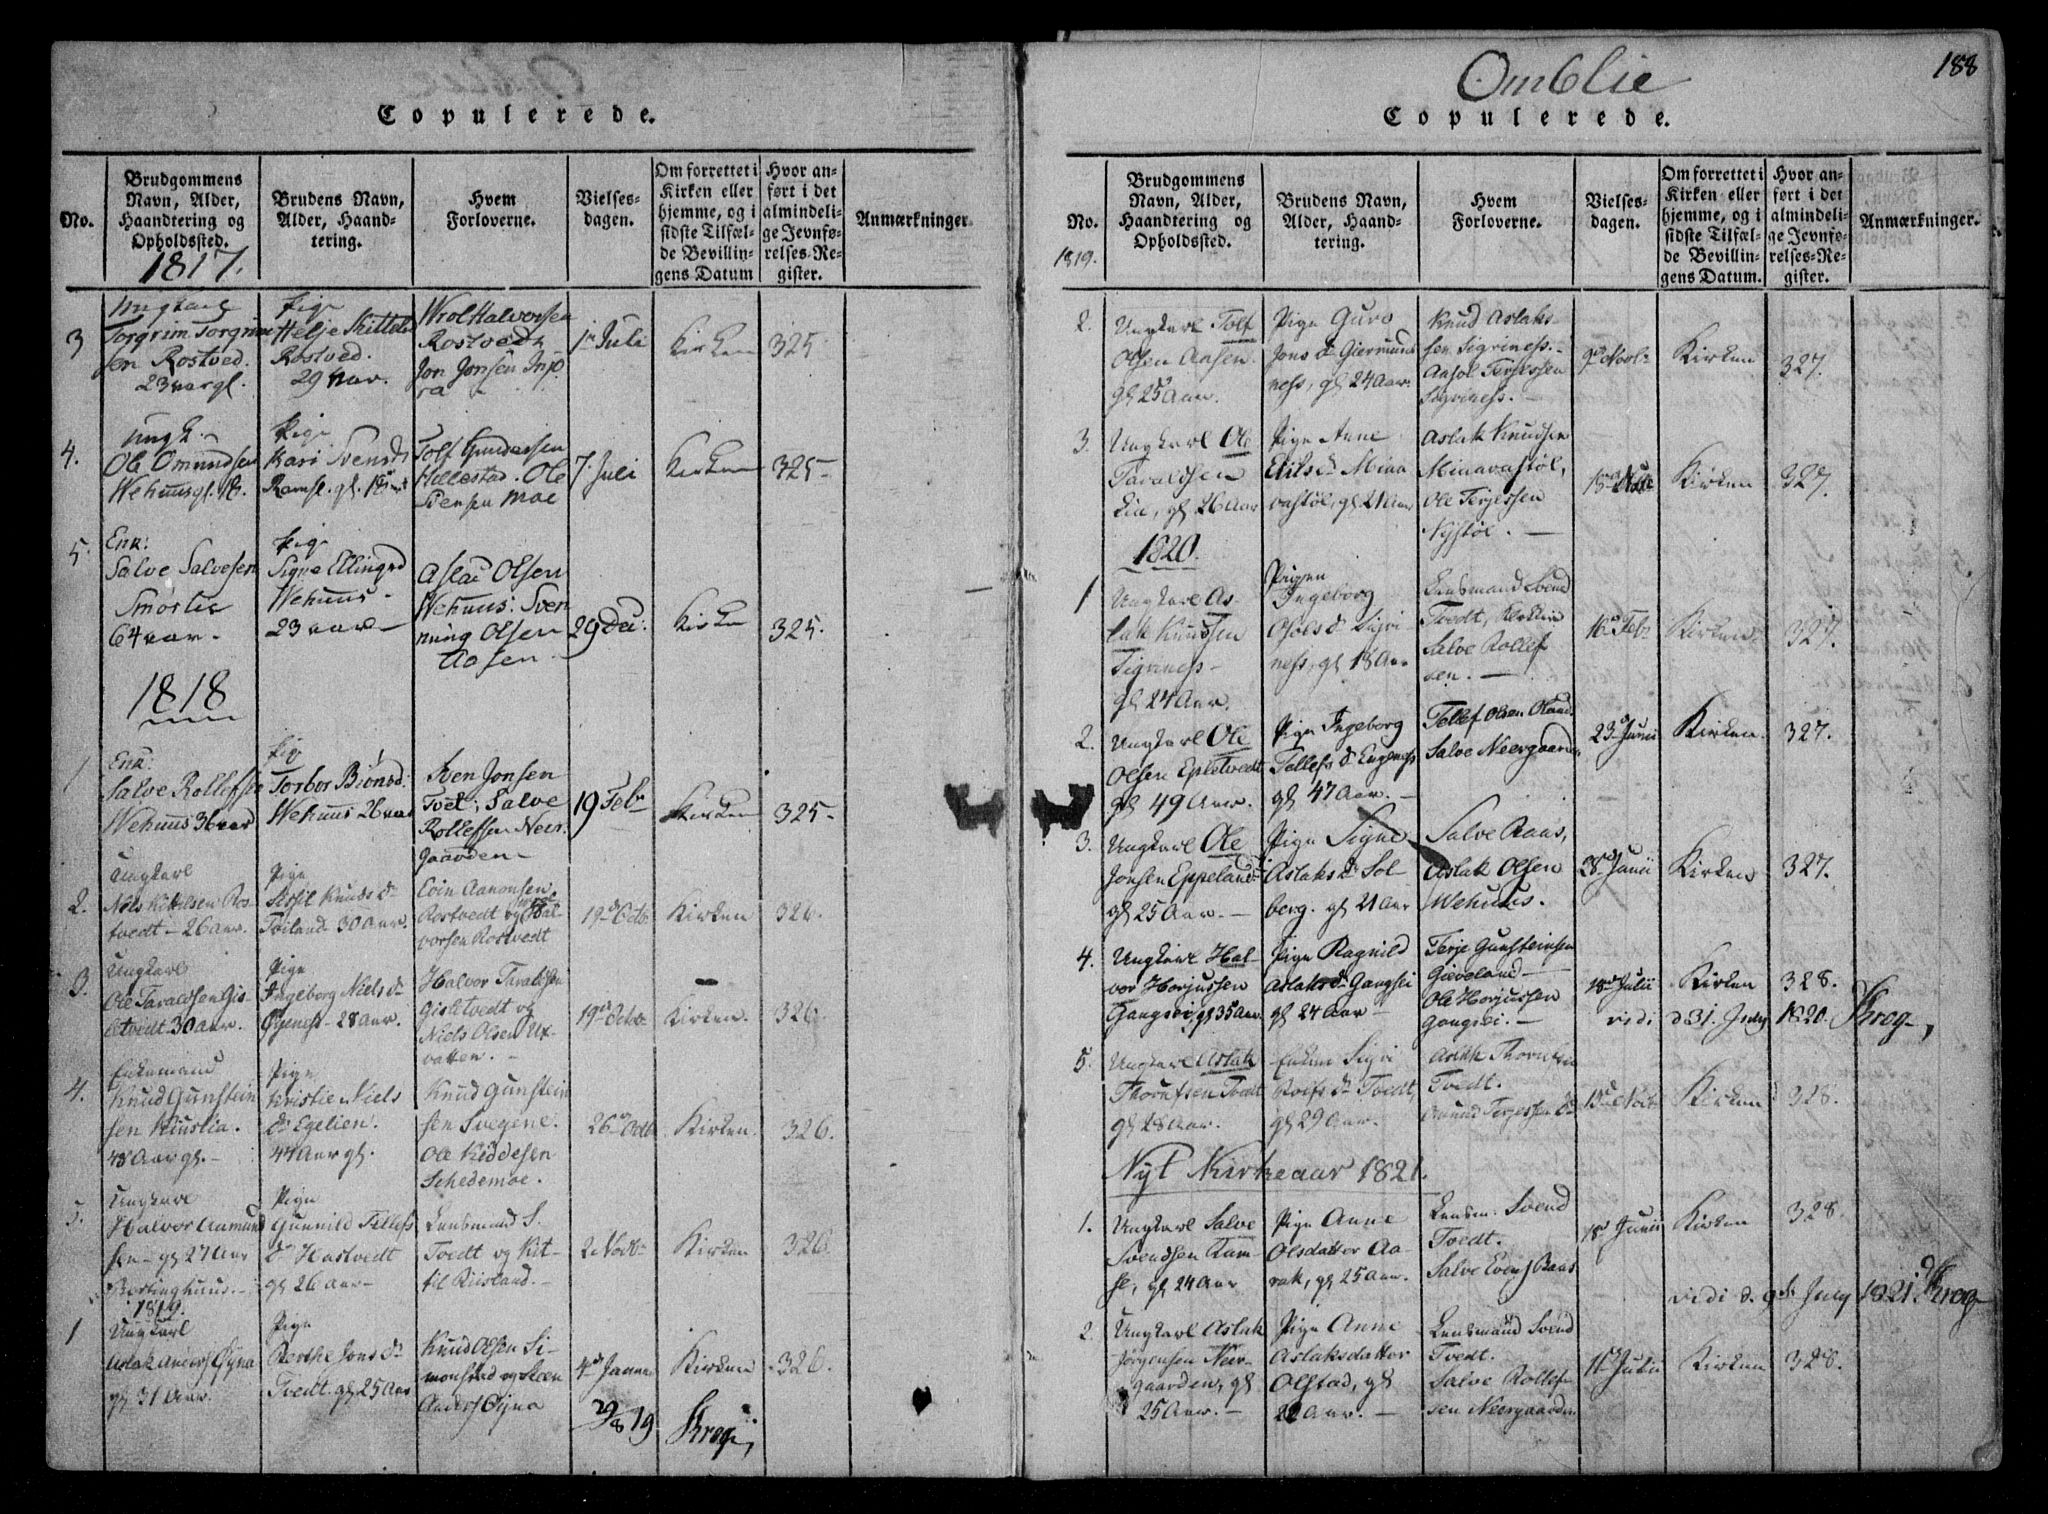 Copulerede.
No.
Brudgommens Navn, Alder, Haandtering og Opholdssted.
Brudens Navn, Alder, Haandtering.
Hvem Forloverne.
Vielsesdagen.
Om forrettet i Kirken eller hjemme, og i sidste Tilfælde Bevillingens Datum
Hvor anført i det almindelige Jevnførelses-Register.
Anmærkninger
1817.
3
Ungkarl
Torgrim Torgrim
sen Rostved.
23 aar gl.
Pige
Helje Kittelsd
Rostved.
29 aar.
Wrol Halvorsen
Rostvedt
Jon Jonsen
1 Juli
Kirken
325.
4.
Ungk.
Ole Omundsen
Wehuus gl. 18.
Pige
Kari Svensd
Ramsl. gl. 18
Tolf Gundersen
Hillestad. Ole
Svensen Moe
7 Juli
Kirken
325.
5.
Enk:
Salve Salvesen
Smørlie
64 aar.
Pige
Signe Ellingsd
Wehuus
23 aar
Aslac Olsen
Wehuus: Sven
ning Olsen
Aasen
29 Dec:
Kirken
325.
1818
1
Enk:
Salve Rollefsen
Wehuus 36 aar
Pig
Torbor Biønsd:
Wehuus 26 aar
Sven Jonsen
Tvet, Salve
Rollefsen Neer
gaarden
19 Febr
Kirken
325.
2.
Ungkarl
Niels Kittilsen Ros
tvedt 26 Aar.
Pige
Sissil Knuds d
Föiland 30 Aar.
Evin Aanonsen
Rostvedt og Hal
vorsen Rostvedt
19 Octb
Kirken
326.
3.
Ungkarl
Ole Taraldsen Gis
letvedt 30 Aar.
Pige
Ingeborg Niels d
Øyeness 28 Aar.
Halvor Taraldsen
Gisletvedt og
Niels Olsen Ux
vatten.
19 Octob
Kirken.
326.
4.
Enkemand
Knud Gunstein
sen Kiuslia.
48 Aar gl.
Pige
Kristie Niels
d Egelien.
47 Aar gl.
Knud Gunstein
sen Svegene.
Ole Kiddelsen
Schedemoe.
26 Octb
Kirken.
326.
5.
Ungkarl
Halvor Aamund
sen gl 27 Aar
Pige
Gunnild Tellefs
d Hastvedt
gl 26 Aar
Lensmand S.
Tvedt og Kit-
til Riisland.
2 Novb
Kirken
326
1819.
1
Ungkarl
Aslak Anders Øyna
gl 31 Aar.
Pige
Berthe Jons d
Tvedt. gl 25 Aar
Knud Olsen Si-
monstad og Steen
Anders Øyna
4 Januar
Kirken
326.
29/8 19
Krog,
Omblie
188
Copulerede.
No.
Brudgommens Navn, Alder, Haandtering og Opholdssted.
Brudens Navn, Alder, Haandtering.
Hvem Forloverne.
Vielsesdagen.
Om forrettet i Kirken eller hjemme, og i sidste Tilfælde Bevillingens Datum.
Hvor anført i det almindelige Jevnførelses-Register.
Anmærkninger.
1819.
2.
Ungkarl Tolf
Olsen Aasen.
gl 25 Aar.
Pige Guro
Jons d Giermunds
ness, gl 24 Aar.
Knud Aslak-
sen Sigriness.
Aasol Terjessen
Sigriness.
9 Novb
Kirken
327.
3.
Ungkarl Ole
Taraldsen
Lia, gl 26 Aar
Pige Anne
Eriks d Mina
vastøl, gl 21 Aar
Aslak Knudsen
Minavastøl,
Ole Terjessen
Nystøl.
Kirken
327.
1820.
1
Ungkarl As-
lak Knudsen
Sigriness
gl 24 Aar.
Pigen
Ingeborg
Osols d Sigri
ness, gl 18 Aar
Lensmand Svend
Tvedt,
Salve Rollef
sen.
16 Febr
Kirken
327.
2.
Ungkarl Ole
Olsen Epletvedt
gl 49 Aar.
Pige Ingeborg
Tellefs d Engeness
gl 47 Aar.
Tellef Olsen
Salve Neergaarden
23 Junii
Kirken.
327.
3.
Ungkarl Ole
Jonsen Eppeland
gl 25 Aar.
Pige Signe
Aslaks d Sol-
berg. gl 21 Aar
Salve Raas,
Aslak Olsen
Wehuus.
28 Junii
Kirken
327.
4.
Ungkarl Hal-
vor Horjussen
Gangsei gl 35 Aar.
Pige Ragnild
Aslaks d Gangsei
gl 24 Aar
Terje Gunsteinsen
Gieveland
Ole Horjussen
Gangsei.
18 Julii
Kirken
328.
vidi d 31. July 1820. Krog,
5.
Ungkarl Aslak
Thorufsen Tvedt
gl 28 Aar.
Enken Sigri
Roifs d Tvedt,
gl 29 Aar.
Aslak Thorufsen
Tvedt.
Omund Terjessen
13 Novb
Kirken
328.
Nyt Kirkeaar 1821.
1.
Ungkarl Salve
Svendsen Ram-
se, gl 24 Aar
Pige Anne
Olsdatter Aa-
rak, gl 25 Aar.
Lensm. Svend
Tvedt.
Salve Evens Raas
18 Junii
Kirken
328.
vidi d. 9de July 1821. Krog
2.
Ungkarl Aslak
Jørgensen Neer-
gaarden, gl
25 Aar.
Pige Anne
Aslaksdatter
Olstad, gl
22 Aar.
Lensmand Svend
Tvedt.
Salve Rollef
sen Neergaarden
11 Julii
Kirken
328.